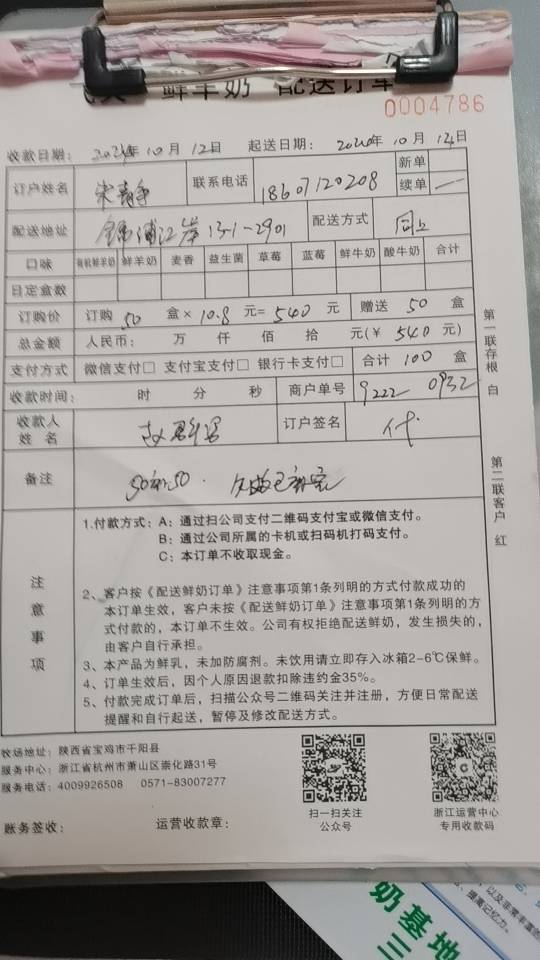 鲜羊奶 配送订单
0004786
收款日期: 2020年10月12日 起送日期: 2020年10月14日
订户姓名 联系电话 18607120208 新单
续单
配送地址 锦浦江岸13-1-2901 配送方式 同上
口味 有机鲜羊奶 鲜羊奶 麦香 益生菌 草莓 蓝莓 鲜牛奶 酸牛奶 合计
日定盒数
订购价 订购50盒×10.8元=540元 赠送50盒
总金额 人民币: 万 仟 佰 拾 元(¥ 540元)
支付方式 微信支付□ 支付宝支付□ 银行卡支付□ 合计100盒
收款时间: 时 分 秒 商户单号 9222 0932
收款人
姓名 订户签名 代
备注
注意事项
1.付款方式: A: 通过扫公司支付二维码支付宝或微信支付。
B: 通过公司所属的卡机或扫码机打码支付。
C: 本订单不收取现金。
2、客户按《配送鲜奶订单》注意事项第1条列明的方式付款成功的
本订单生效,客户未按《配送鲜奶订单》注意事项第1条列明的方
式付款的,本订单不生效。公司有权拒绝配送鲜奶,发生损失的,
由客户自行承担。
3、本产品为鲜乳,未加防腐剂。未饮用请立即存入冰箱2-6℃保鲜。
4、订单生效后,因个人原因退款扣除违约金35%。
5、付款完成订单后,扫描公众号二维码关注并注册,方便日常配送
提醒和自行起送,暂停及修改配送方式。
第一联存根 白
第二联客户 红
牧场地址: 陕西省宝鸡市千阳县
服务中心: 浙江省杭州市萧山区崇化路31号
服务电话: 4009926508 0571-83007277
账务签收: 运营收款章:
扫一扫关注
公众号
浙江运营中心
专用收款码
奶基地
三
以及非常丰富的
提高记忆力。